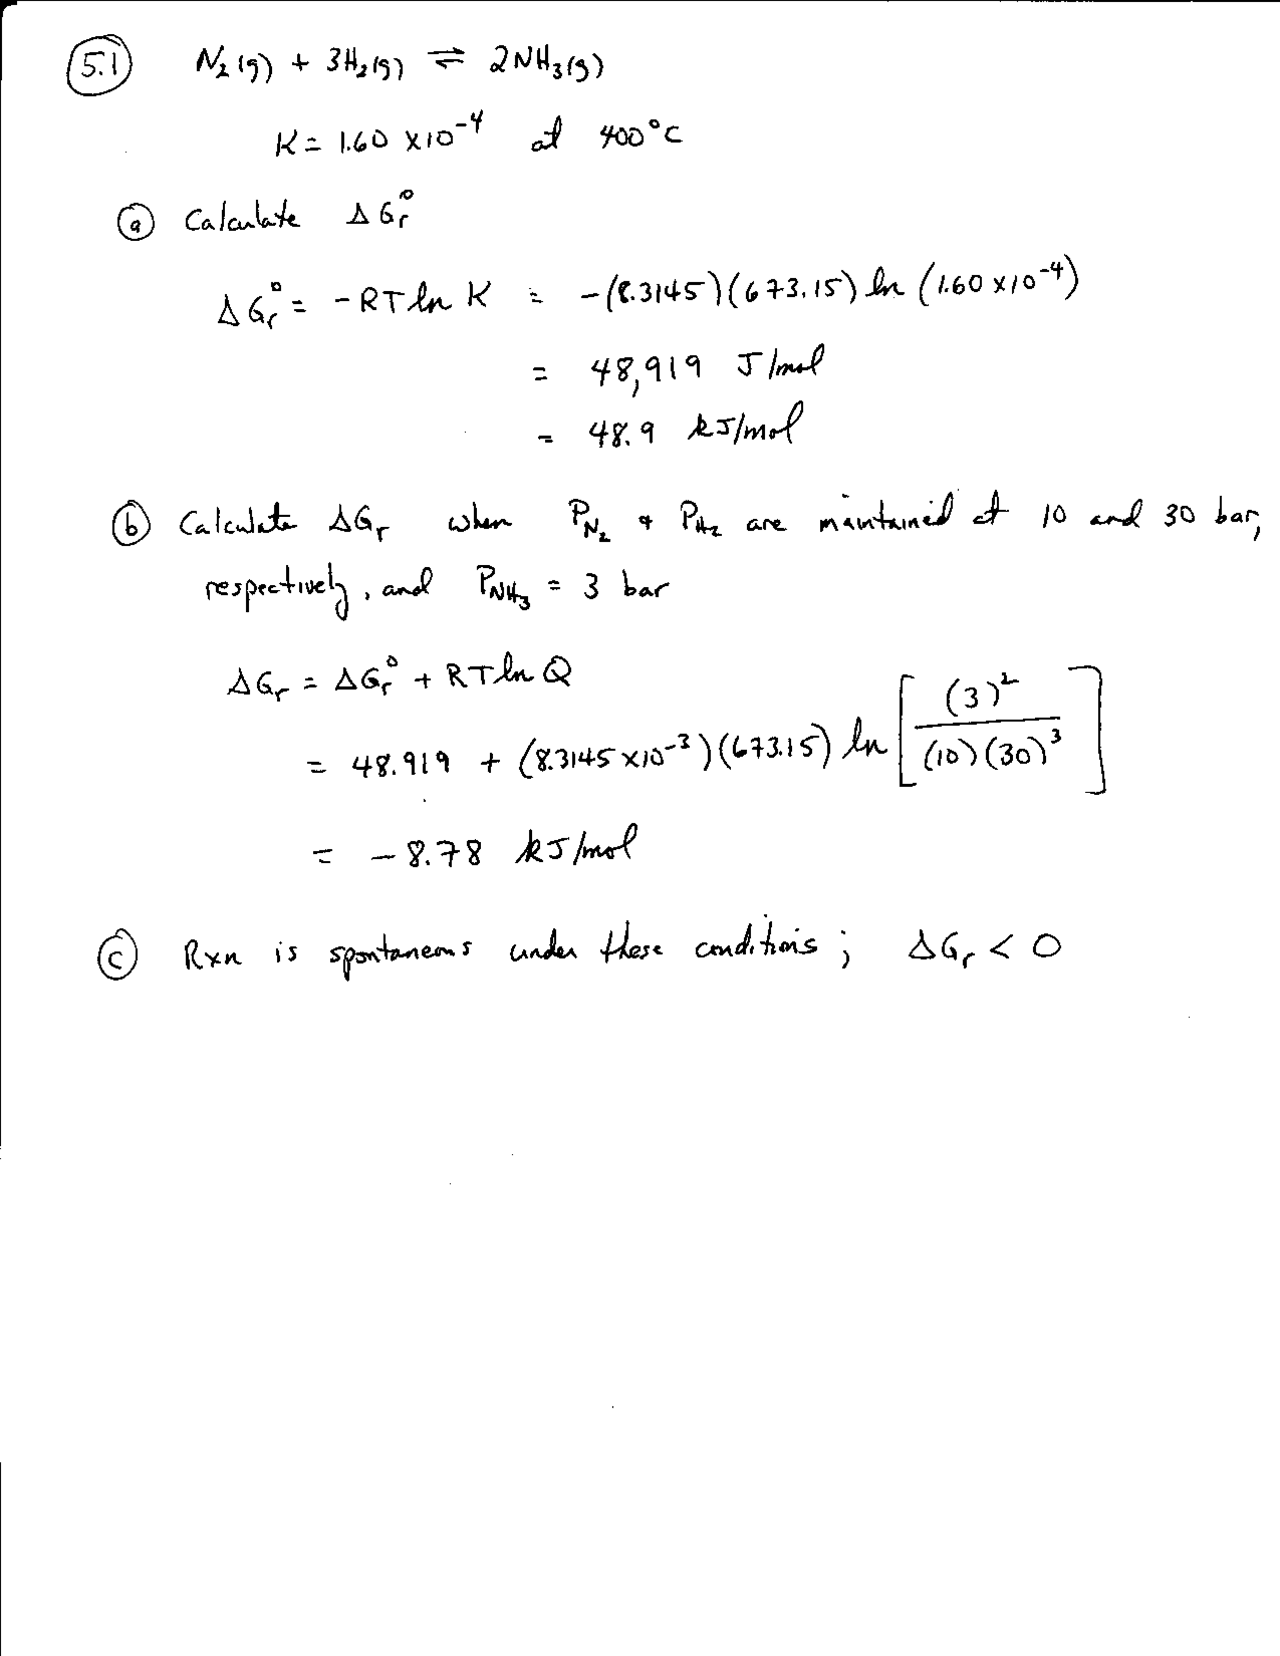 5.1 N₂(g) + 3H₂(g) ⇌ 2NH₃(g)
K = 1.60 × 10⁻⁴ at 400°C
(a) Calculate ΔGᵣ°
ΔGᵣ° = -RT ln K = -(8.3145)(673.15) ln (1.60 × 10⁻⁴)
= 48,919 J/mol
= 48.9 kJ/mol
(b) Calculate ΔGᵣ when P_N₂ & P_H₂ are maintained at 10 and 30 bar,
respectively, and P_NH₃ = 3 bar
ΔGᵣ = ΔGᵣ° + RT ln Q
= 48.919 + (8.3145 × 10⁻³)(673.15) ln [(3)² / (10)(30)³]
= -8.78 kJ/mol
(c) Rxn is spontaneous under these conditions; ΔGᵣ < 0